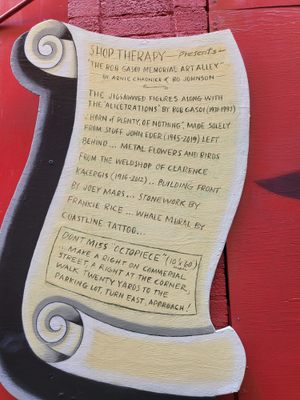 SHOP THERAPY — Presents —
"THE BOB GASOI MEMORIAL ART ALLEY"
BY ARNIE CHARNICK & BO JOHNSON —
THE JIGSAWED FIGURES ALONG WITH
THE "ALICETRATIONS" BY BOB GASOI (1931-1997)
"HORN OF PLENTY, OF NOTHING", MADE SOLELY
FROM STUFF JOHN EDER (1945-2019) LEFT
BEHIND ... METAL FLOWERS AND BIRDS
FROM THE WELDSHOP OF CLARENCE
KACERGIS (1916-2012) ... BUILDING FRONT
BY JOEY MARS ... STONEWORK BY
FRANKIE RICE ... WHALE MURAL BY
COASTLINE TATTOO ...
DON'T MISS "OCTOPIECE" (10'x60')
... MAKE A RIGHT ON COMMERCIAL
STREET, A RIGHT AT THE CORNER,
WALK TWENTY YARDS TO THE
PARKING LOT, TURN EAST, APPROACH!